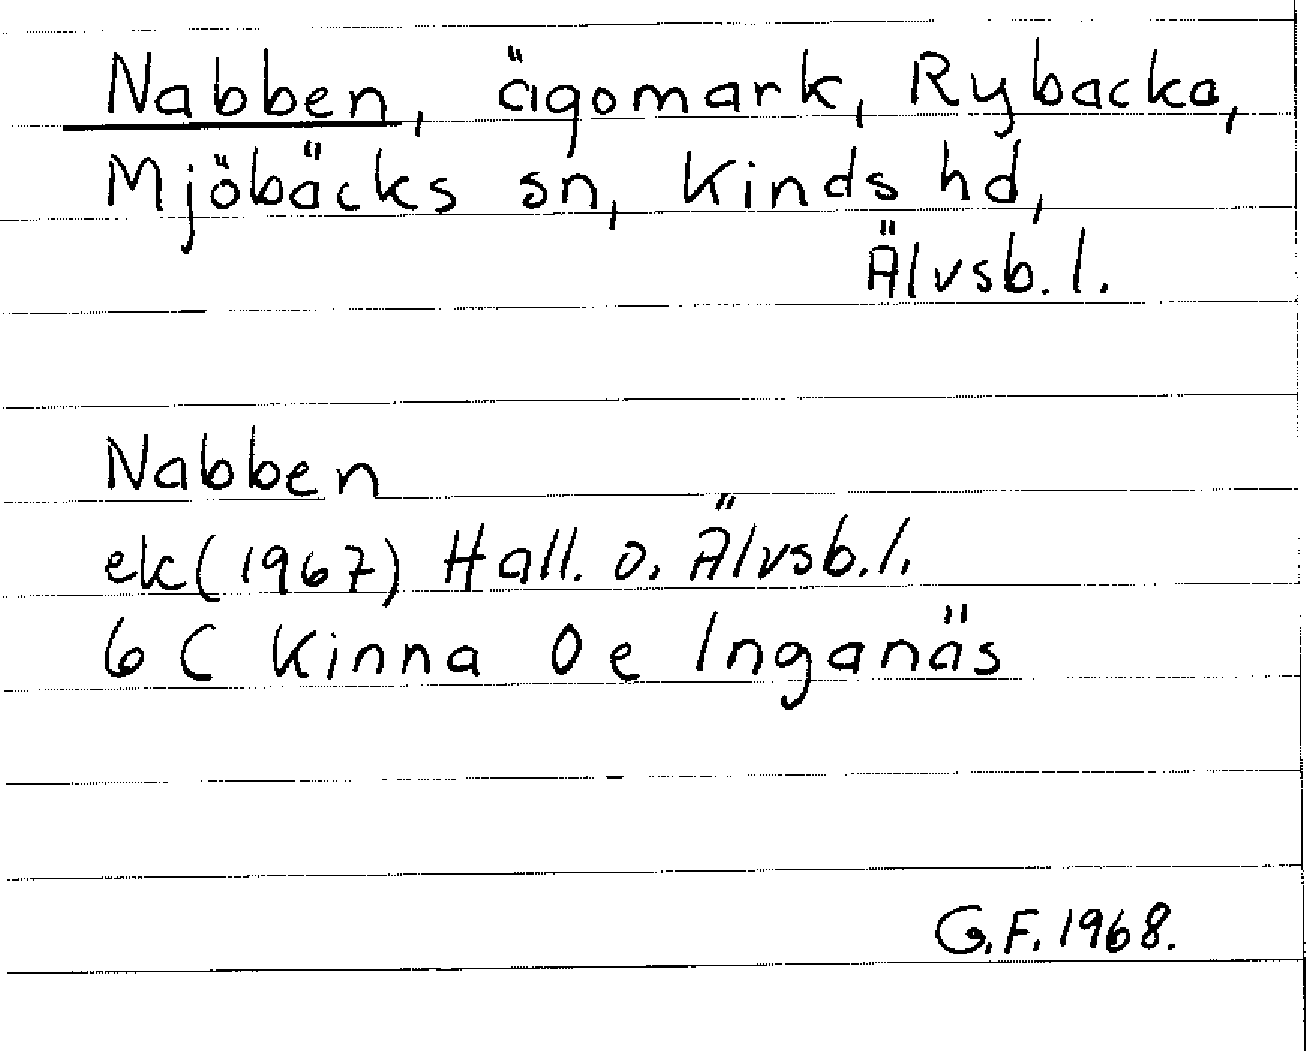 Nabben, ägomark, Rybacka,
Mjöbäcks sn, Kinds hd,
Älvsb. l.
Nabben
ek (1967) Hall. o. Älvsb. l.
6 C Kinna 0 e Inganäs
G.F. 1968.